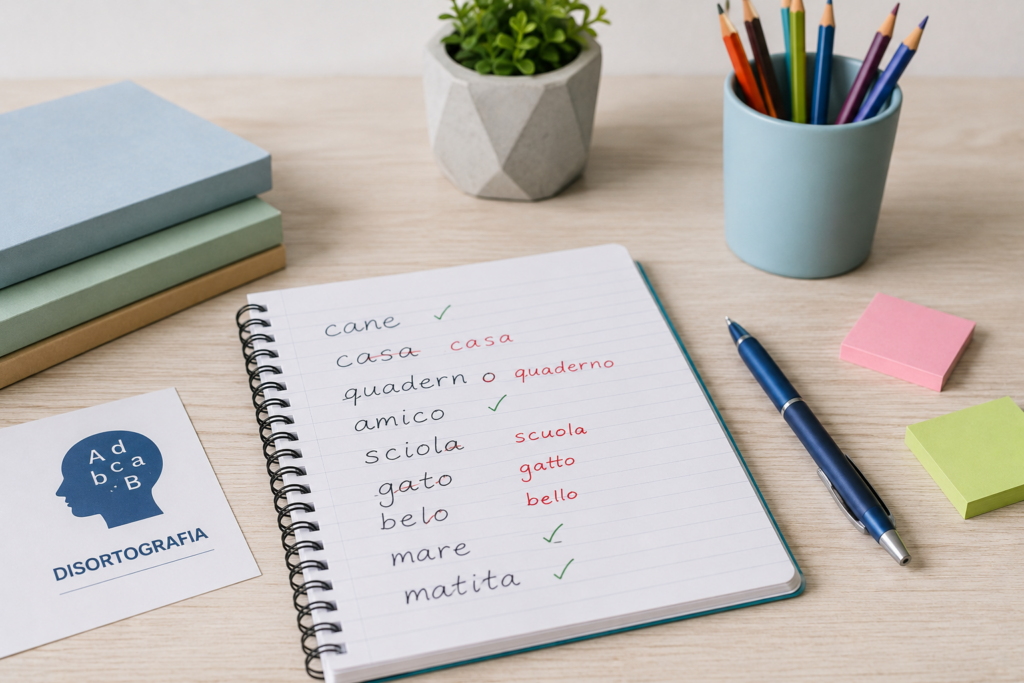 cane ✓
casa casa
quadern o quaderno
amico ✓
sciola scuola
gato gatto
belo bello
mare ✓
matita ✓
A d
b c a
B
DISORTOGRAFIA